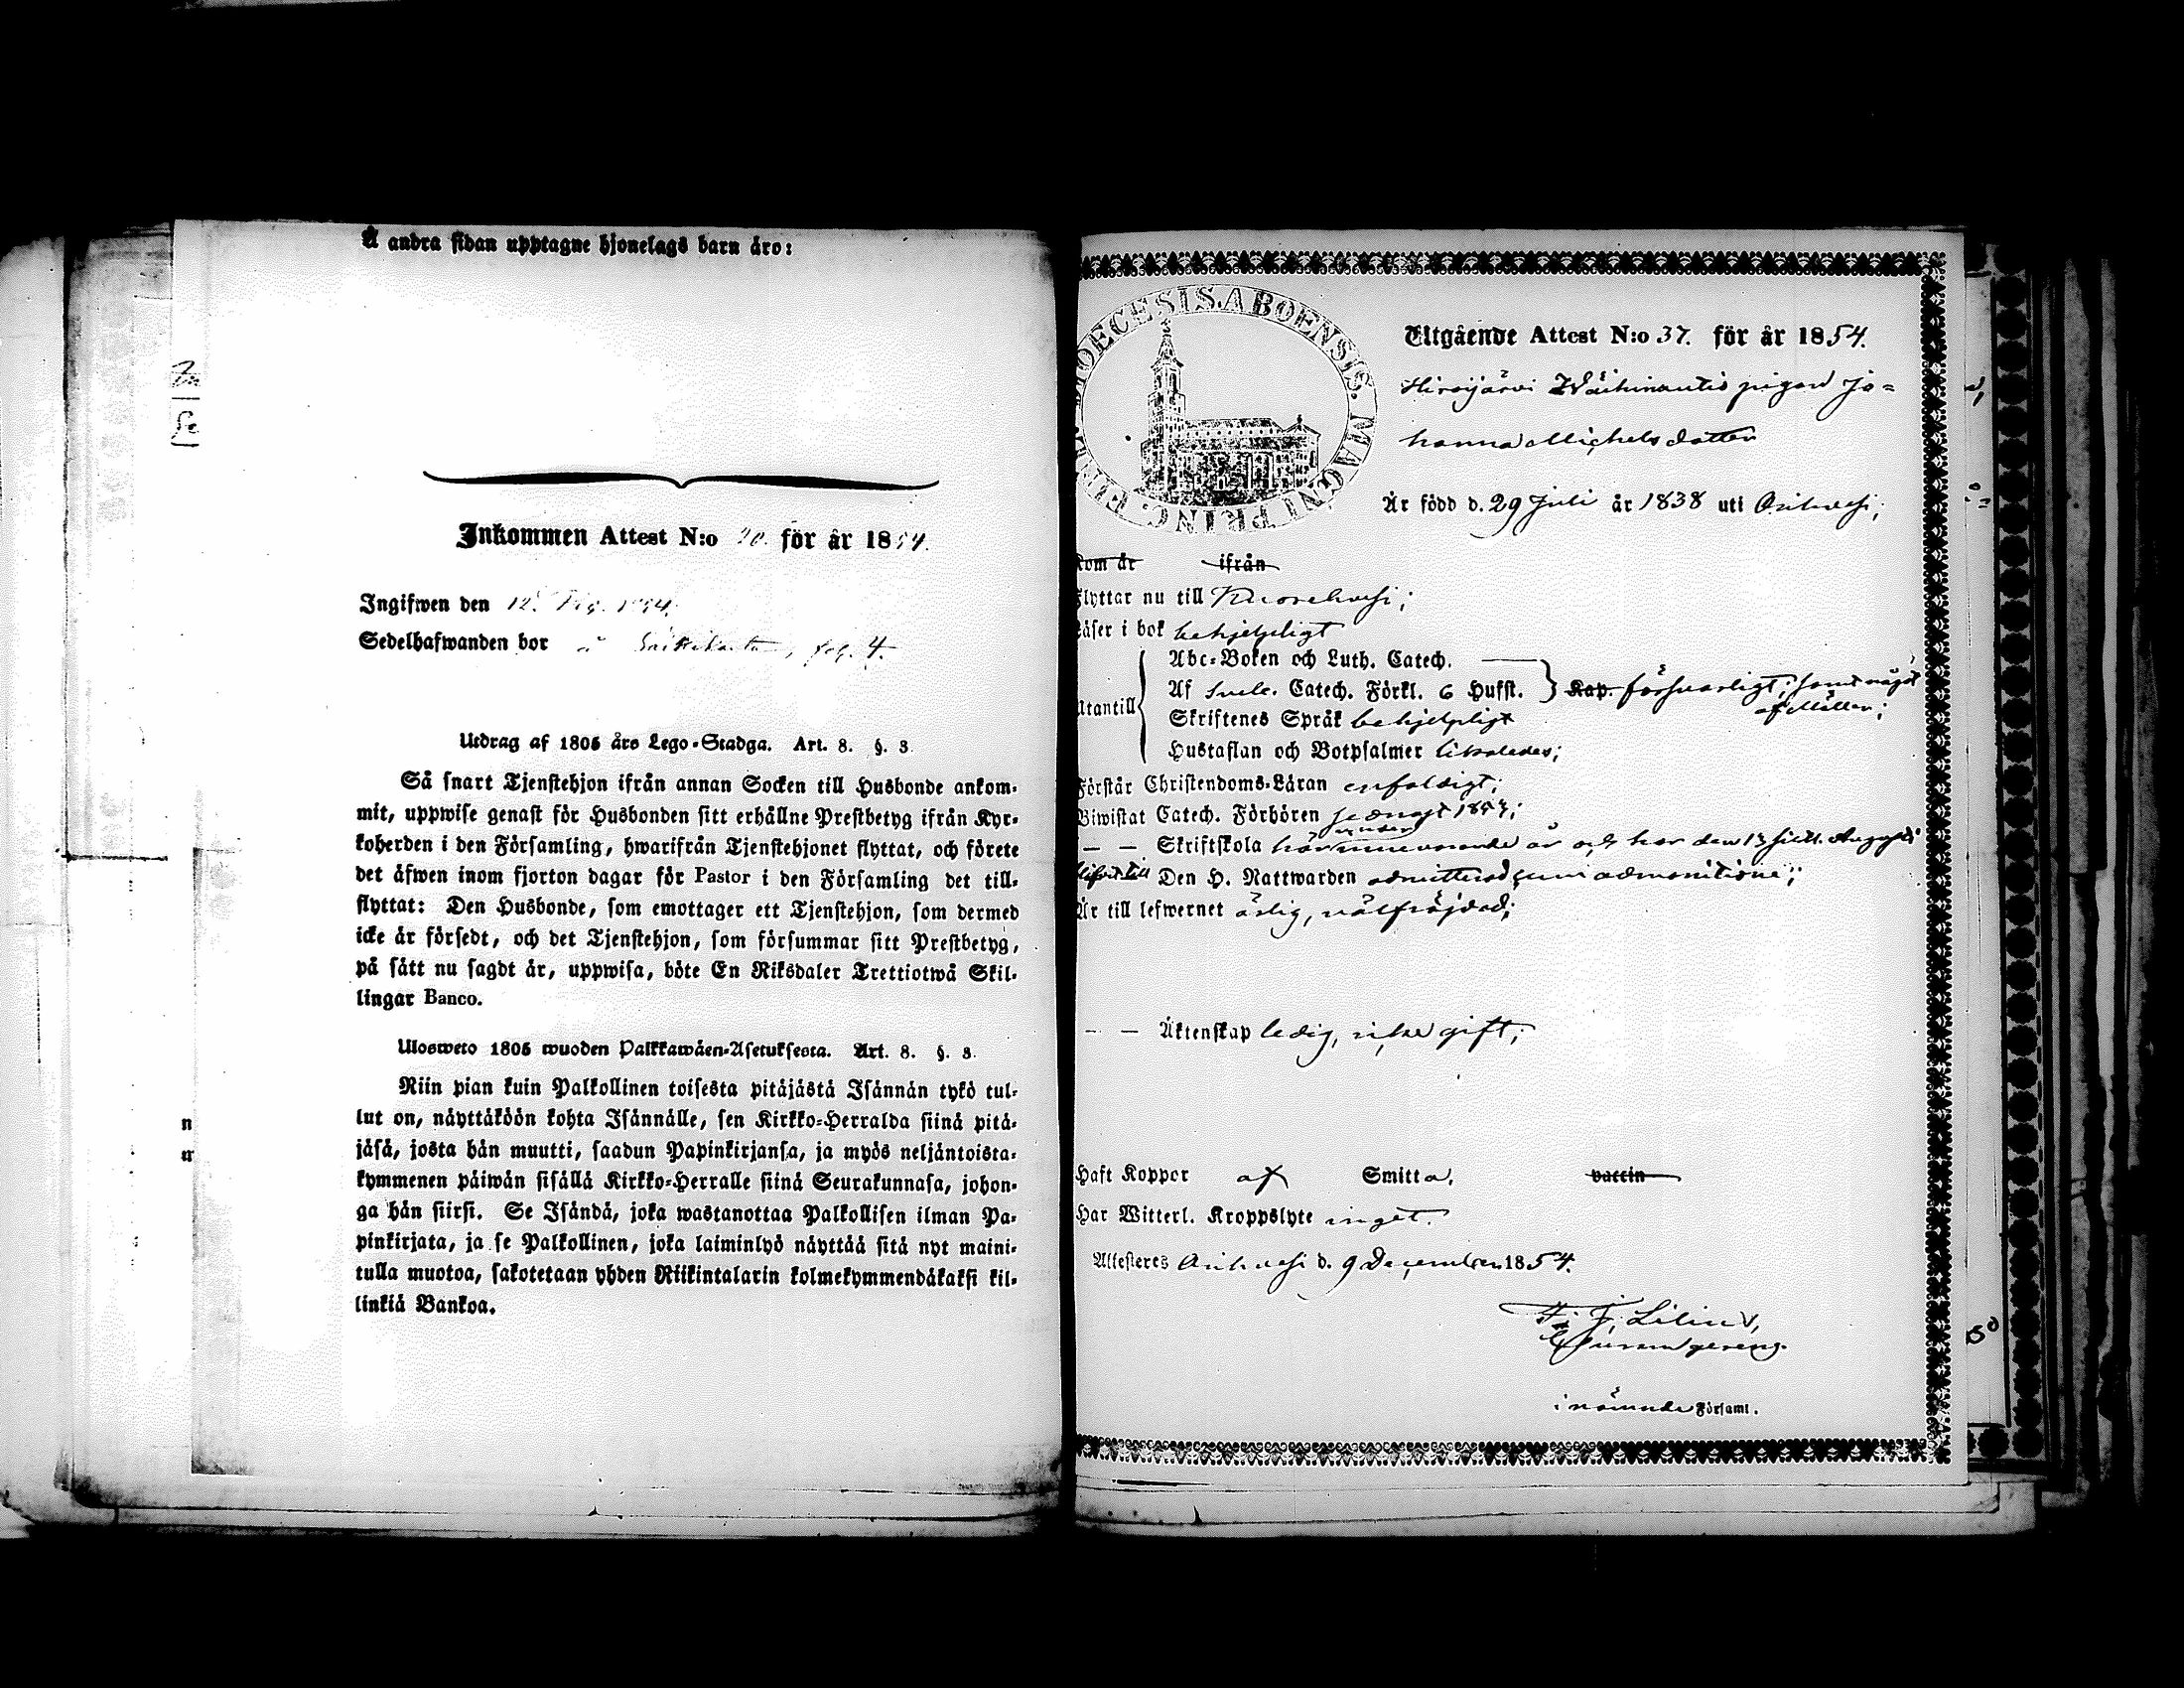 Å andra sidan upptagne hjonelags barn äro:
Inkommen Attest N:o 20. för år 1854.
Ingifwen den 12. 1854.
Sedelhafwanden bor å fol. 4.
Utdrag af 1805 års Lego-Stadga. Art. 8. §. 3.
Så snart Tjenstehjon ifrån annan Socken till Husbonde ankom-
mit, uppwise genast för Husbonden sitt erhållne Prestbetyg ifrån Kyr-
koherden i den Församling, hwarifrån Tjenstehjonet flyttat, och förete
det äfwen inom fjorton dagar för Pastor i den Församling det till-
flyttat: Den Husbonde, som emottager ett Tjenstehjon, som dermed
icke är försedt, och det Tjenstehjon, som försummar sitt Prestbetyg,
på sätt nu sagdt är, uppwisa, böte En Riksdaler Trettiotwå Skil-
lingar Banco.
Ulosweto 1805 wuoden Palkkawäen-Asetuksesta. Art. 8. §. 3.
Niin pian kuin Palkollinen toisesta pitäjästä Isännän tykö tul-
lut on, näyttäköön kohta Isännälle, sen Kirkko-Herralda siinä pitä-
jäsä, josta hän muutti, saadun Papinkirjansa, ja myös neljäntoista-
kymmenen päiwän sisällä Kirkko-Herralle siinä Seurakunnasa, johon-
ga hän siirsi. Se Isändä, joka wastanottaa Palkollisen ilman Pa-
pinkirjata, ja se Palkollinen, joka laiminlyö näyttää sitä nyt maini-
tulla muotoa, sakotetaan yhden Riikintalarin kolmekymmendäkaksi kil-
linkiä Bankoa.
DIOECESIS. ABOENSIS. MAGNI PRINC. FINL.
Utgående Attest N:o 37. för år 1854.
Hirvijärvi Wäihinautis pigan Jo=
hanna Michelsdotter
Är född d. 29 Juli år 1838 uti Orihvesi;
kom år ifrån
Flyttar nu till Kuorehvesi;
Läser i bok behjelpligt
Abc-Boken och Luth. Catech.
Af Svele. Catech. Förkl. 6 Hufst. Kap. försvarligt; samt något
af Möller;
Utantill
Skriftenes Språk behjelpligt
Hustaflan och Botpsalmer likaledes;
Förstår Christendoms-Läran enfaldigt;
Biwistat Catech. Förhören sednast 1853;
— — Skriftskola här under innevarande år och har den 13 sistl. Augusti
blifvit till Den H. Nattwarden admitterad cum admonitione;
Är till lefwernet ärlig, välfräjdad;
— — Äktenskap ledig, icke gift;
Haft Koppor af Smitta. vaccin
Har Witterl. Kroppslyte inget.
Attesteras Orihvesi d. 9 December 1854.
F. J. Lilius,
i nämnde Församl.